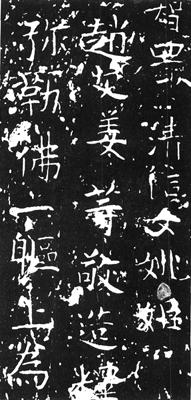 清信女姚
趙妃姜等敬造
弥勒佛一軀上為